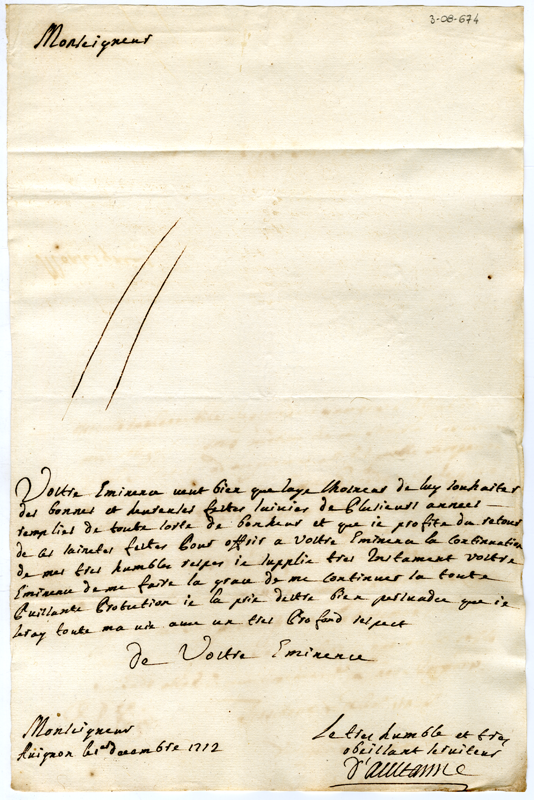 3-08-674
Monseigneur
Vostre Eminence veut bien que jaye lhoneur de luy souhaiter
des bonnes et heureuses festes suivies de Plusieurs annees
remplies de toute sorte de bonheur et que je profite du retour
de ces saintes festes Pour offrir a Vostre Eminence la Continuation
de mes tres humbles respec je suplie tres Instament vostre
Eminence de me faire la grace de me continuer sa toute
Puissante Protection je la prie destre bien persuadée que je
seray toute ma vie avec un tres Profond respect
de Vostre Eminence
Monseigneur
Avignon le decembre 1712
Le tres humble et tres
obeissant serviteur